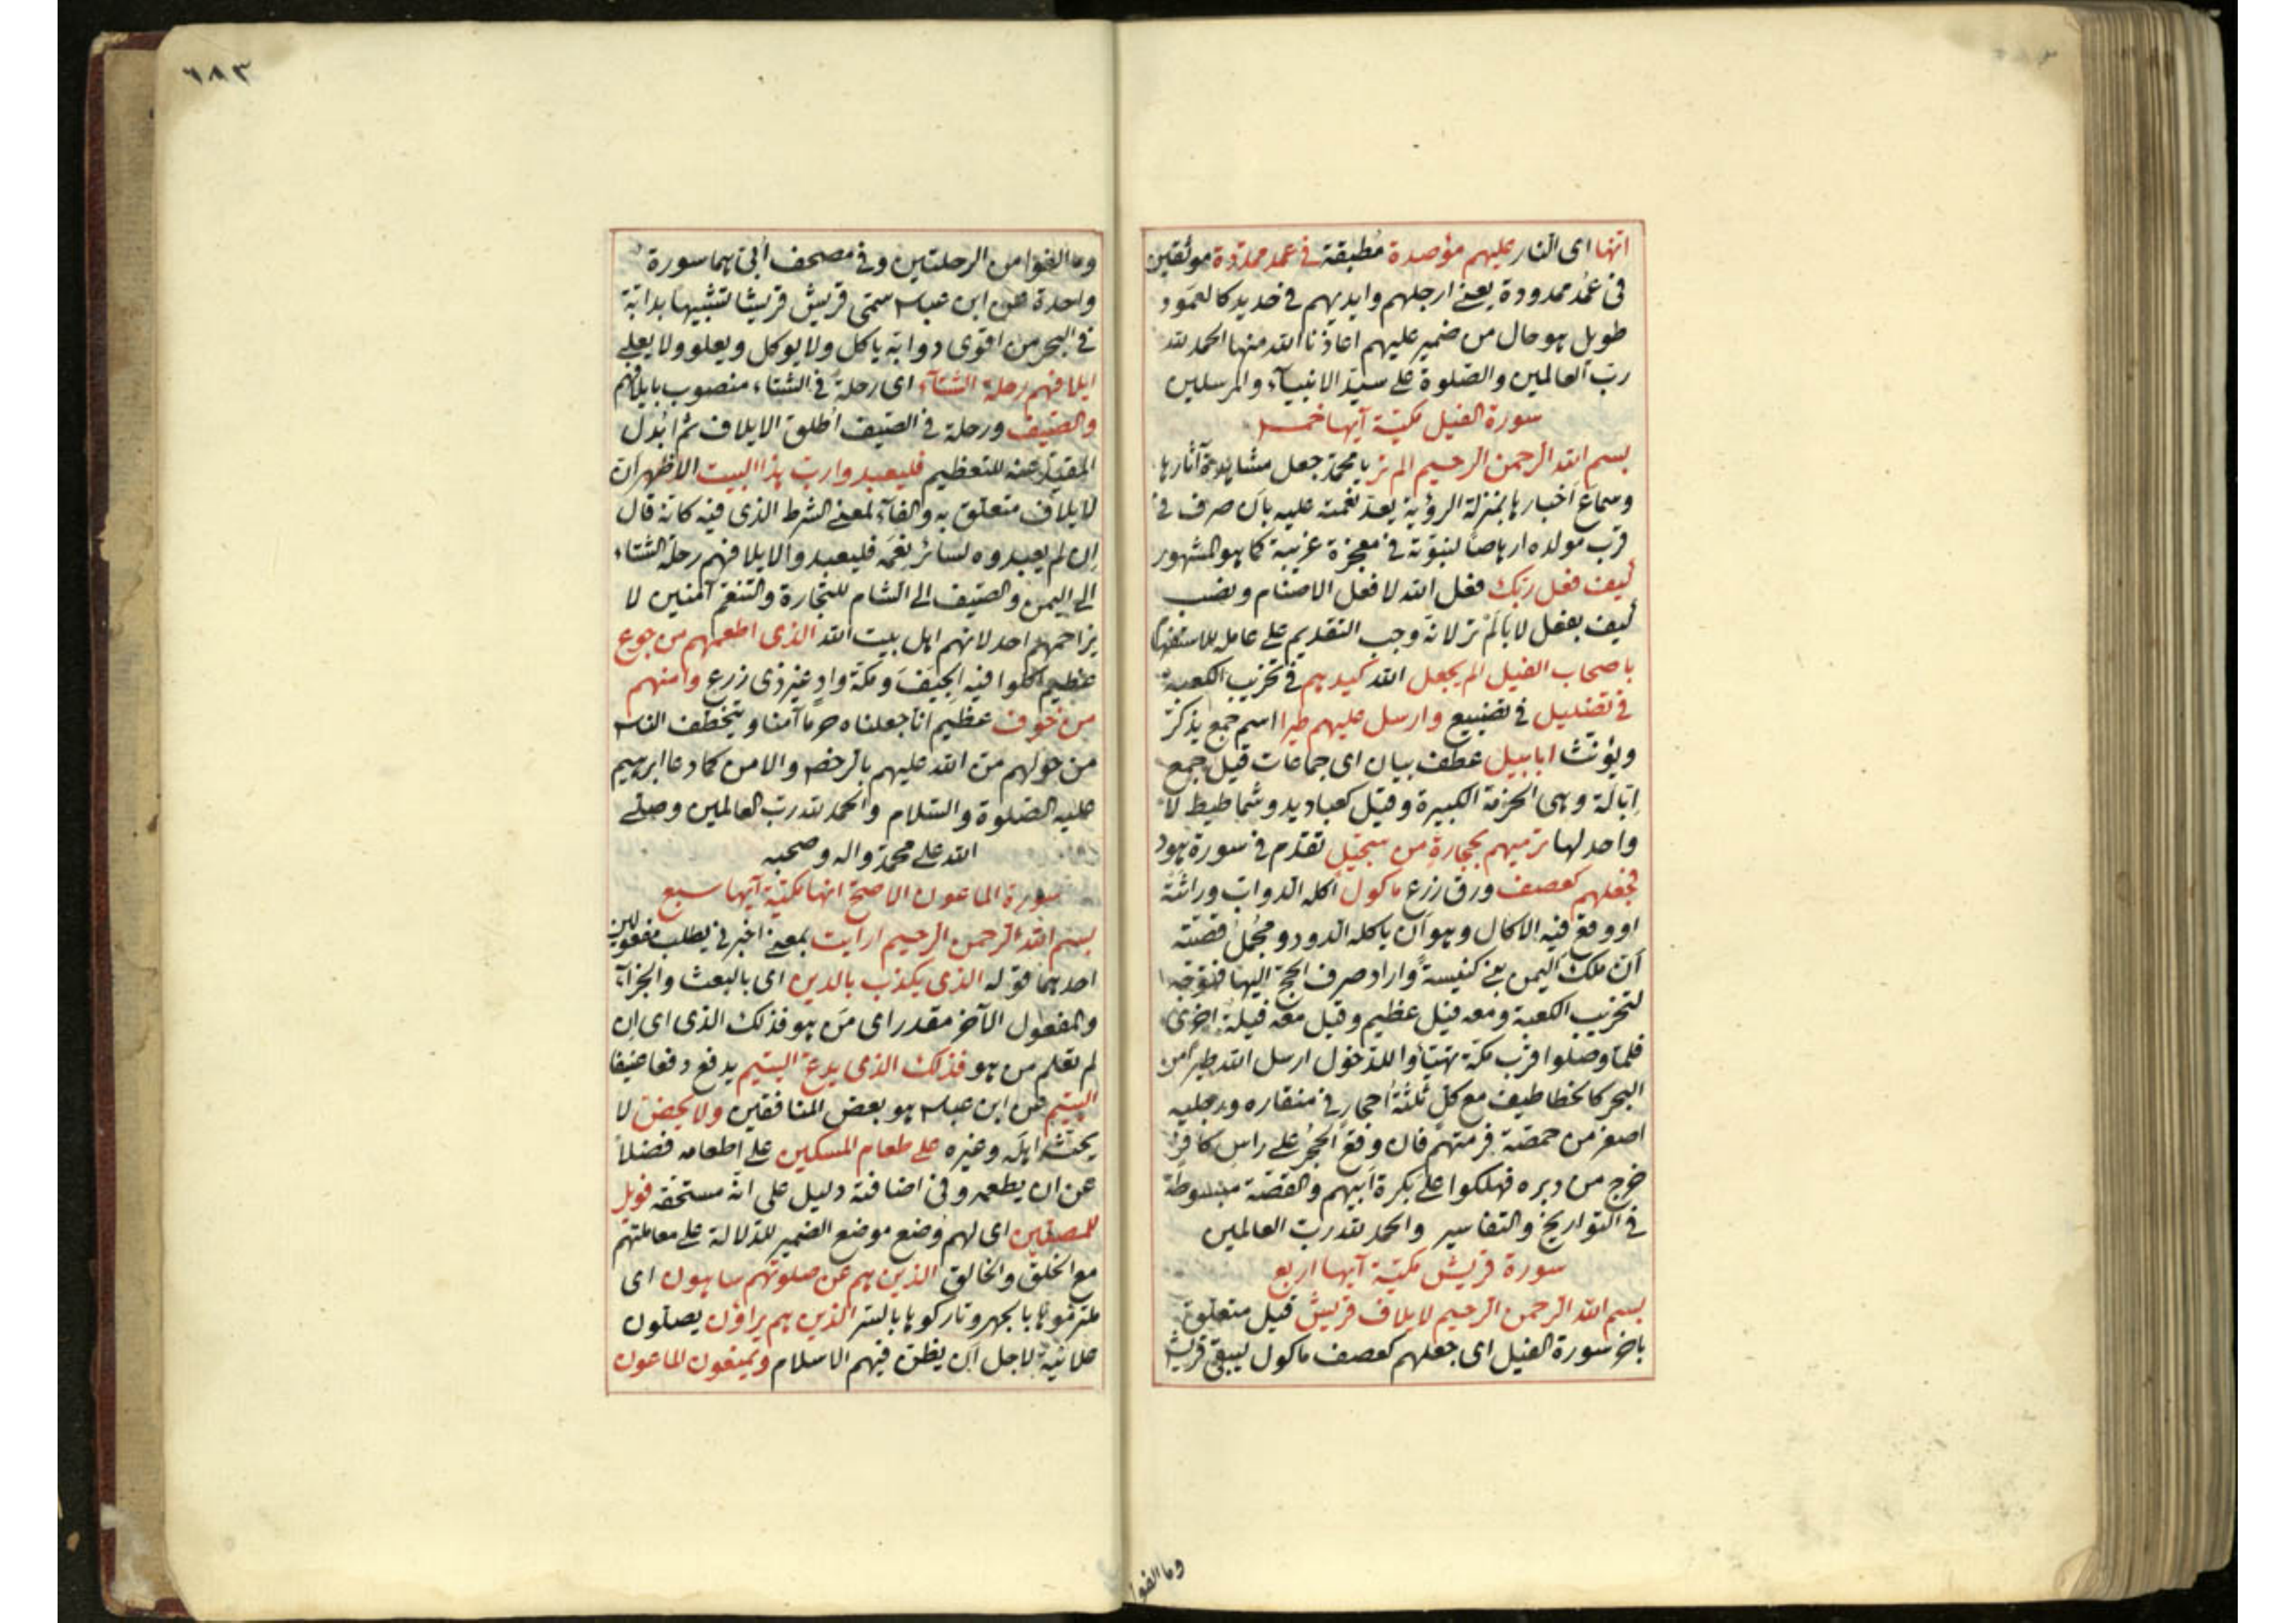 انها اى النار عليهم مؤصدة مُطبقة فى عمد ممدّدة موثقين
فى عُمُد ممدودة يعنى ارجلهم وايديهم فى حديد كالعمود
طويل هو حال من ضمير عليهم اعاذنا الله منها الحمد لله
رب العالمين والصّلوة على سيّد الانبيآء والمرسلين
سورة الفيل مكيّة آيها خمس
بسم الله الرحمن الرحيم الم تر يا محمّد جعل مشاهدة آثارها
وسماع اخبارها بمنزلة الرؤية يعدّ نعمته عليه بان صرف فى
قرب مولده ارهاصًا لنبوّته فى معجزة غريبة كما هو المشهور
كيف فعل ربّك فعل الله لا فعل الاصنام ونصب
كيف بفعل لا بالَمْ تر لانه وجب التقديم على عامله للاستفهام
باصحاب الفيل الم يجعل الله كيدهم فى تخريب الكعبة
فى تضليل فى تضييع وارسل عليهم طيرا اسم جمع يذكّر
ويؤنّث ابابيل عطف بيان اى جماعات قيل جمع
اِبّالة وهى الحزمة الكبيرة وقيل كعباديد وشماطيط لا
واحد لها ترميهم بحجارة من سجّيل تقدّم فى سورة هود
فجعلهم كعصف ورق زرع ماكول اكله الدواب وراثته
او وقع فيه الاكال وهو ان ياكله الدود ومجمل قصّته
انّ ملك اليمن بنى كنيسةً واراد صرف الحجّ اليها فتوجّه
لتخريب الكعبة ومعه فيل عظيم وقيل معه فيلة اخرى
فلمّا وصلوا قرب مكّة تهيّأوا للدّخول ارسل الله طيرا من
البحر كالخطاطيف مع كلٍّ ثلثة احجار فى منقاره ورجليه
اصغر من حمصّة فرمتهم فان وقع الحجر على راس كافر
خرج من دبره فهلكوا على بكرة ابيهم والقصّة مبسوطة
فى التواريخ والتفاسير والحمد لله رب العالمين
سورة قريش مكيّة آيها اربع
بسم الله الرحمن الرحيم لايلاف قريش قيل متعلّق
باخر سورة الفيل اى جعلهم كعصف ماكول ليبقى قريش
وما الفوا
٦٨٣
وما الفوا من الرحلتين وفى مصحف اُبىّ هما سورة
واحدة عن ابن عباس سمّى قريش قريشا تشبيها بدابّة
فى البحر من اقوى دوابّه ياكل ولا يوكل ويعلو ولا يعلى
ايلافهم رحلة الشتآء اى رحلةً فى الشتاء منصوب بايلافهم
والصّيف ورحلة فى الصّيف اُطلق الايلاف ثم اُبدل
المقيّد عنه للتعظيم فليعبدوا ربّ هذا البيت الاظهر انّ
لايلاف متعلّق به والفآء لمعنى الشرط الذى فيه كانه قال
اِن لم يعبدوه لسائر نعمه فليعبدوا لايلافهم رحلة الشتاء
الى اليمن والصّيف الى الشام للتجارة والتنعّم آمنين لا
يزاحمهم احد لانهم اهل بيت الله الذى اطعمهم من جوع
عظيم اكلوا فيه الجِيَف ومكّة واد غير ذى زرع وآمنهم
من خوف عظيم انا جعلناه حرمًا آمنا ويتخطّف الناس
من حولهم منّ الله عليهم بالرخص والامن كما دعا ابرهيم
عليه الصّلوة والسّلام والحمد لله رب العالمين وصلّى
الله على محمّد واله وصحبه
سورة الماعون الاصحّ انها مكيّة آيها سبع
بسم الله الرحمن الرحيم ارايت بمعنى اخبرنى يطلب مفعولين
احدهما قوله الذى يكذّب بالدين اى بالبعث والجزآء
والمفعول الآخر مقدر اى مَن هو فذلك الذى اى اِن
لم تعلم من هو فذلك الذى يدعّ اليتيم يدفع دفعا عنيفا
اليتيم عن ابن عباس هو بعض المنافقين ولا يحضّ لا
يحثّ اهله وغيره على طعام المسكين على اطعامه فضلًا
عن ان يطعمه وفى اضافته دليل على انه مستحقه فويل
للمصلّين اى لهم وضع موضع الضمير للدّلالة على معاملتهم
مع الخلق والخالق الذين هم عن صلوتهم ساهون اى
ملتزموها بالجهر وتاركوها بالسّر الذين هم يراؤن يصلّون
علانية لاجل ان يظنّ فيهم الاسلام ويمنعون الماعون